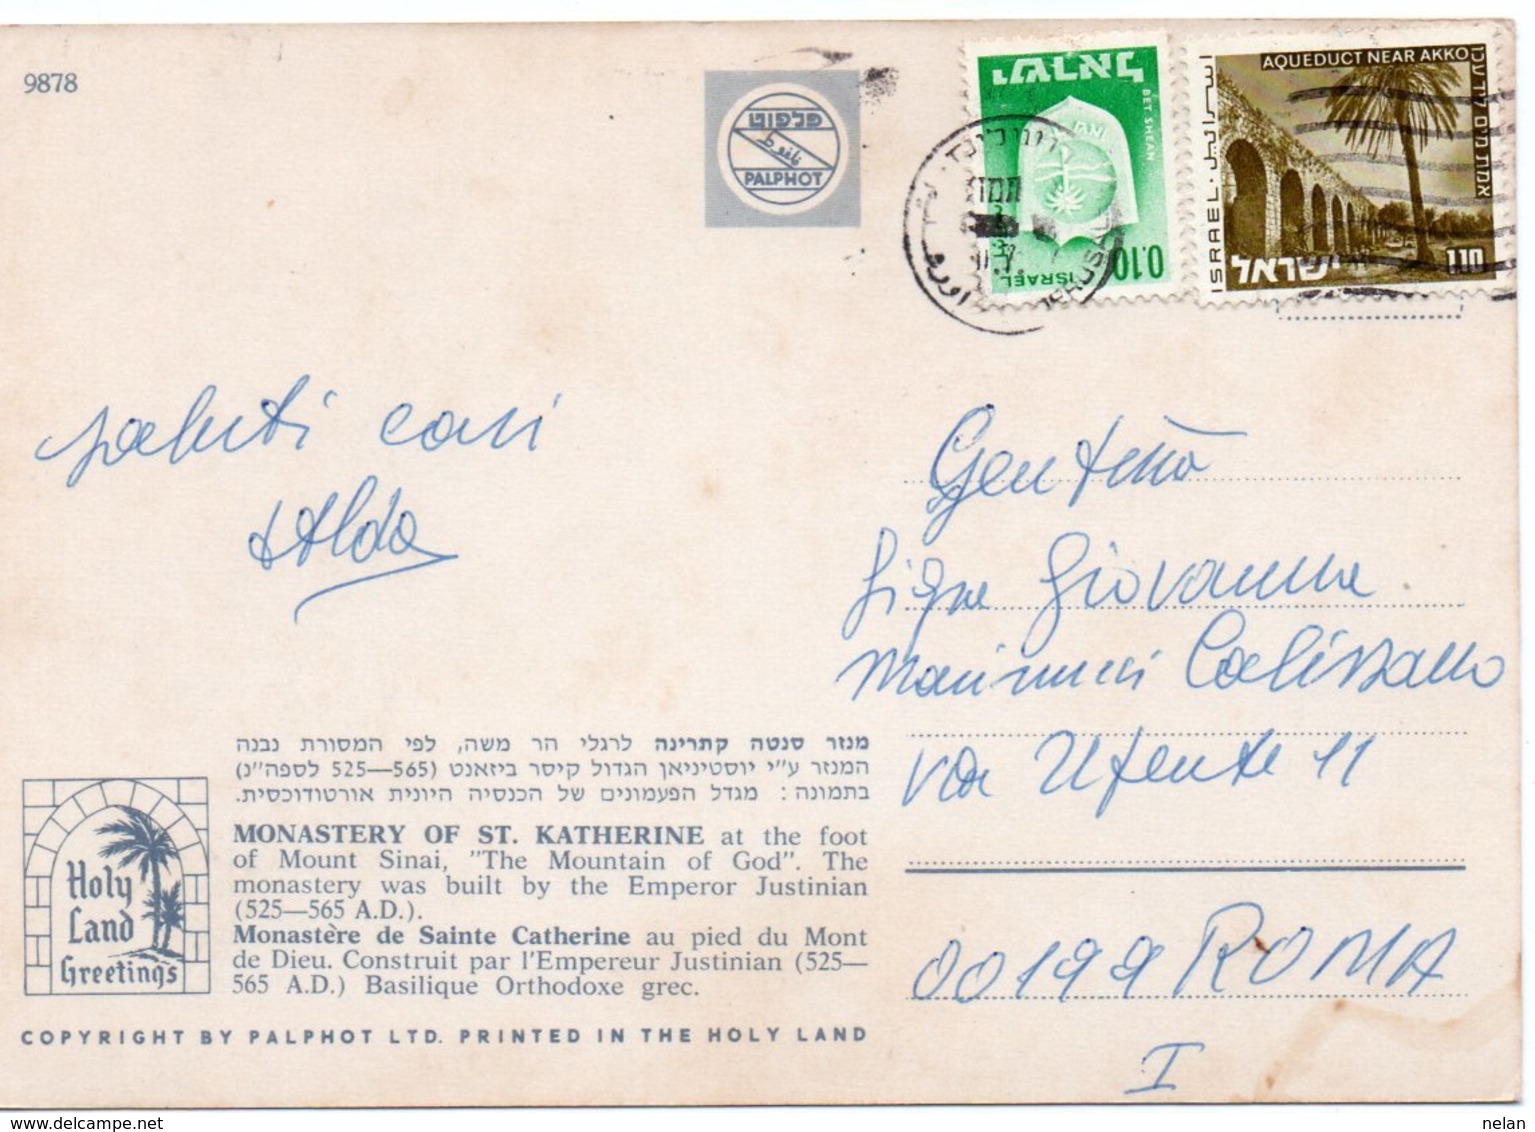 9878
פלפוט
PALPHOT
ישראל
BET SHEAN
ISRAEL
0.10
AQUEDUCT NEAR AKKO
אמת מים ליד עכו
اسرائيل
ISRAEL
ישראל
1.10
saluti cari
Alda
Gent.ma
Sig.na Giovanna
Marinucci
via Ufente 11
00199 ROMA
I
מנזר סנטה קתרינה לרגלי הר משה, לפי המסורת נבנה
המנזר ע״י יוסטיניאן הגדול קיסר ביזאנט (565—525 לספה״נ)
בתמונה: מגדל הפעמונים של הכנסיה היונית אורטודוכסית.
MONASTERY OF ST. KATHERINE at the foot
of Mount Sinai, "The Mountain of God". The
monastery was built by the Emperor Justinian
(525—565 A.D.).
Monastère de Sainte Catherine au pied du Mont
de Dieu. Construit par l'Empereur Justinian (525—
565 A.D.) Basilique Orthodoxe grec.
Holy
Land
Greetings
COPYRIGHT BY PALPHOT LTD. PRINTED IN THE HOLY LAND
nelan